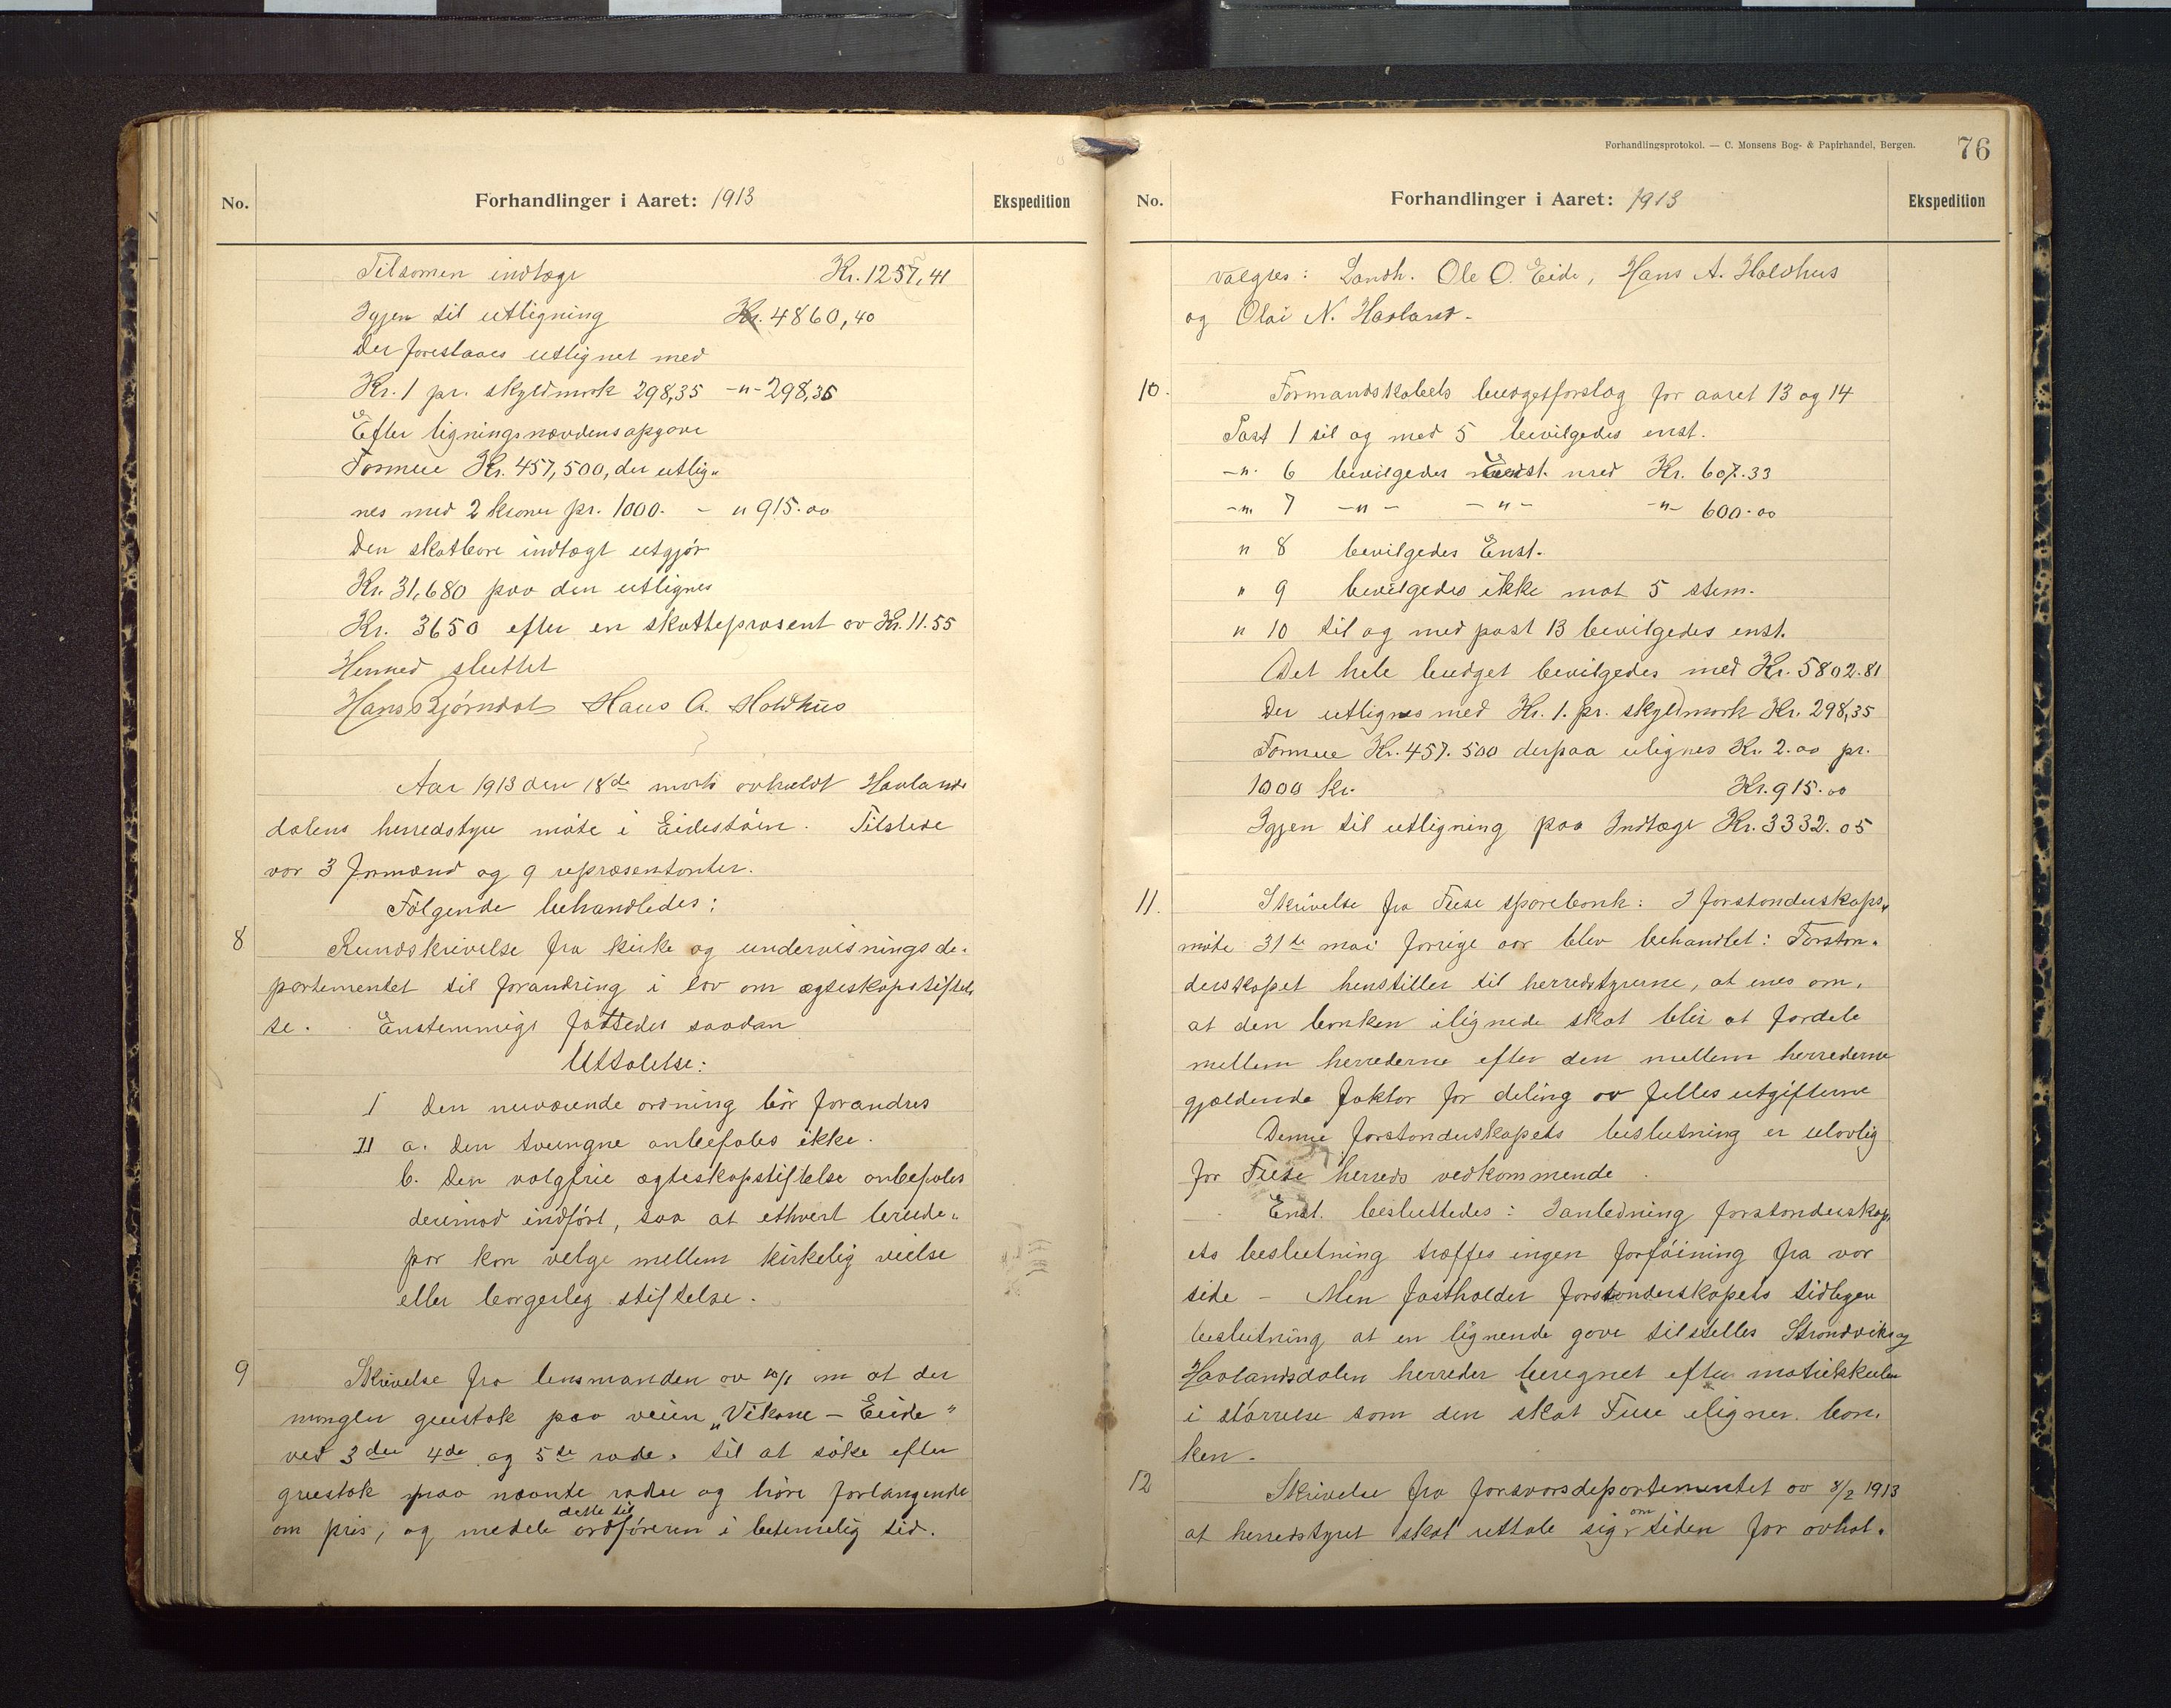 No.
Forhandlinger i Aaret: 1913
Ekspedition
Tilsamen indtægt Kr. 1257,41
Igjen til utligning Kr. 4860,40
Der foreslaaes utlignet med
Kr. 1 pr. skyldmark 298,35 -"- 298,35
Efter ligningsnævdens opgave
Formue Kr. 457,500, der utlig-
nes med 2 kroner pr. 1000. - " 915.00
Den skatbare indtægt utgjør
Kr. 31,680 paa den utlignes
Kr. 3650 efter en skatteprosent av Kr. 11.55
Hermed sluttet
Hans Bjørndal Hans A. Holdhus
Aar 1913 den 18de marts avholdt Haalands
dalens herredstyre møte i Eidestøen. Tilstede
var 3 formænd og 9 repræsentanter.
Følgende behandledes:
8
Rundskrivelse fra kirke og undervisningsde-
partementet til forandring i lov om ægteskapsstiftel-
se. Enstemmigt fattedes saadan
Uttalelse:
I Den nuværende ordning bør forandres
II a. Den tvungne anbefales ikke.
b. Den valgfrie ægteskapstiftelse anbefales
derimod indført, saa at ethvert brude-
par kan velge mellem kirkelig vielse
eller borgerlig stiftelse.
9
Skrivelse fra lensmanden av 10/1 om at der
mangler grustak paa veien „Vikane - Eide"
ved 3die 4de og 5te rode. til at søke efter
grustak paa nævnte roder og høre forlangende
om pris, og medele dette til ordføreren i betimelig tid.
Forhandlingsprotokol. — C. Monsens Bog- & Papirhandel, Bergen.
76
No.
Forhandlinger i Aaret: 1913
Ekspedition
valgtes: Landh. Ole O. Eide, Hans A. Holdhus
og Olai N. Haaland.
10.
Formandskabets budgetforslag for aaret 13 og 14
Post 1 til og med 5 bevilgedes enst.
-"- 6 bevilgedes Enst. med Kr. 607.33
-"- 7 -"- -"- -"- 600.00
" 8 bevilgedes Enst.
" 9 bevilgedes ikke mot 5 stem.
" 10 til og med post 13 bevilgedes enst.
Det hele budget bevilgedes med Kr. 5802.81
Der utlignes med Kr. 1. pr. skyldmark Kr. 298,35
Formue Kr. 457.500 derpaa ulignes Kr. 2.00 pr.
1000 kr. Kr. 915.00
Igjen til utligning paa Indtægt Kr. 3332.05
11.
Skrivelse fra Fuse sparebank: I forstanderskaps-
møte 31te mai forrige aar blev behandlet: Forstan-
derskapet henstiller til herredstyrerne, at enes om,
at den banken ilignede skat blir at fordele
mellem herrederne efter den mellem herrederne
gjældende faktor for deling av felles utgifterne
Denne forstanderskapets beslutning er ulovlig
for Fuse herreds vedkommende
Enst. besluttedes: I anledning forstanderskap-
ets beslutning træffes ingen forføining fra vor
side - Men fastholder forstanderskapets tidligere
beslutning at en lignende gave tilstelles Strandvik og
Haalandsdalen herreder beregnet efter matrikkulen
i størrelse som den skat Fuse iligner ban-
ken.
12
Skrivelse fra forsvarsdepartementet av 8/2 1913
at herredstyret skal uttale sig om tiden for avhol-